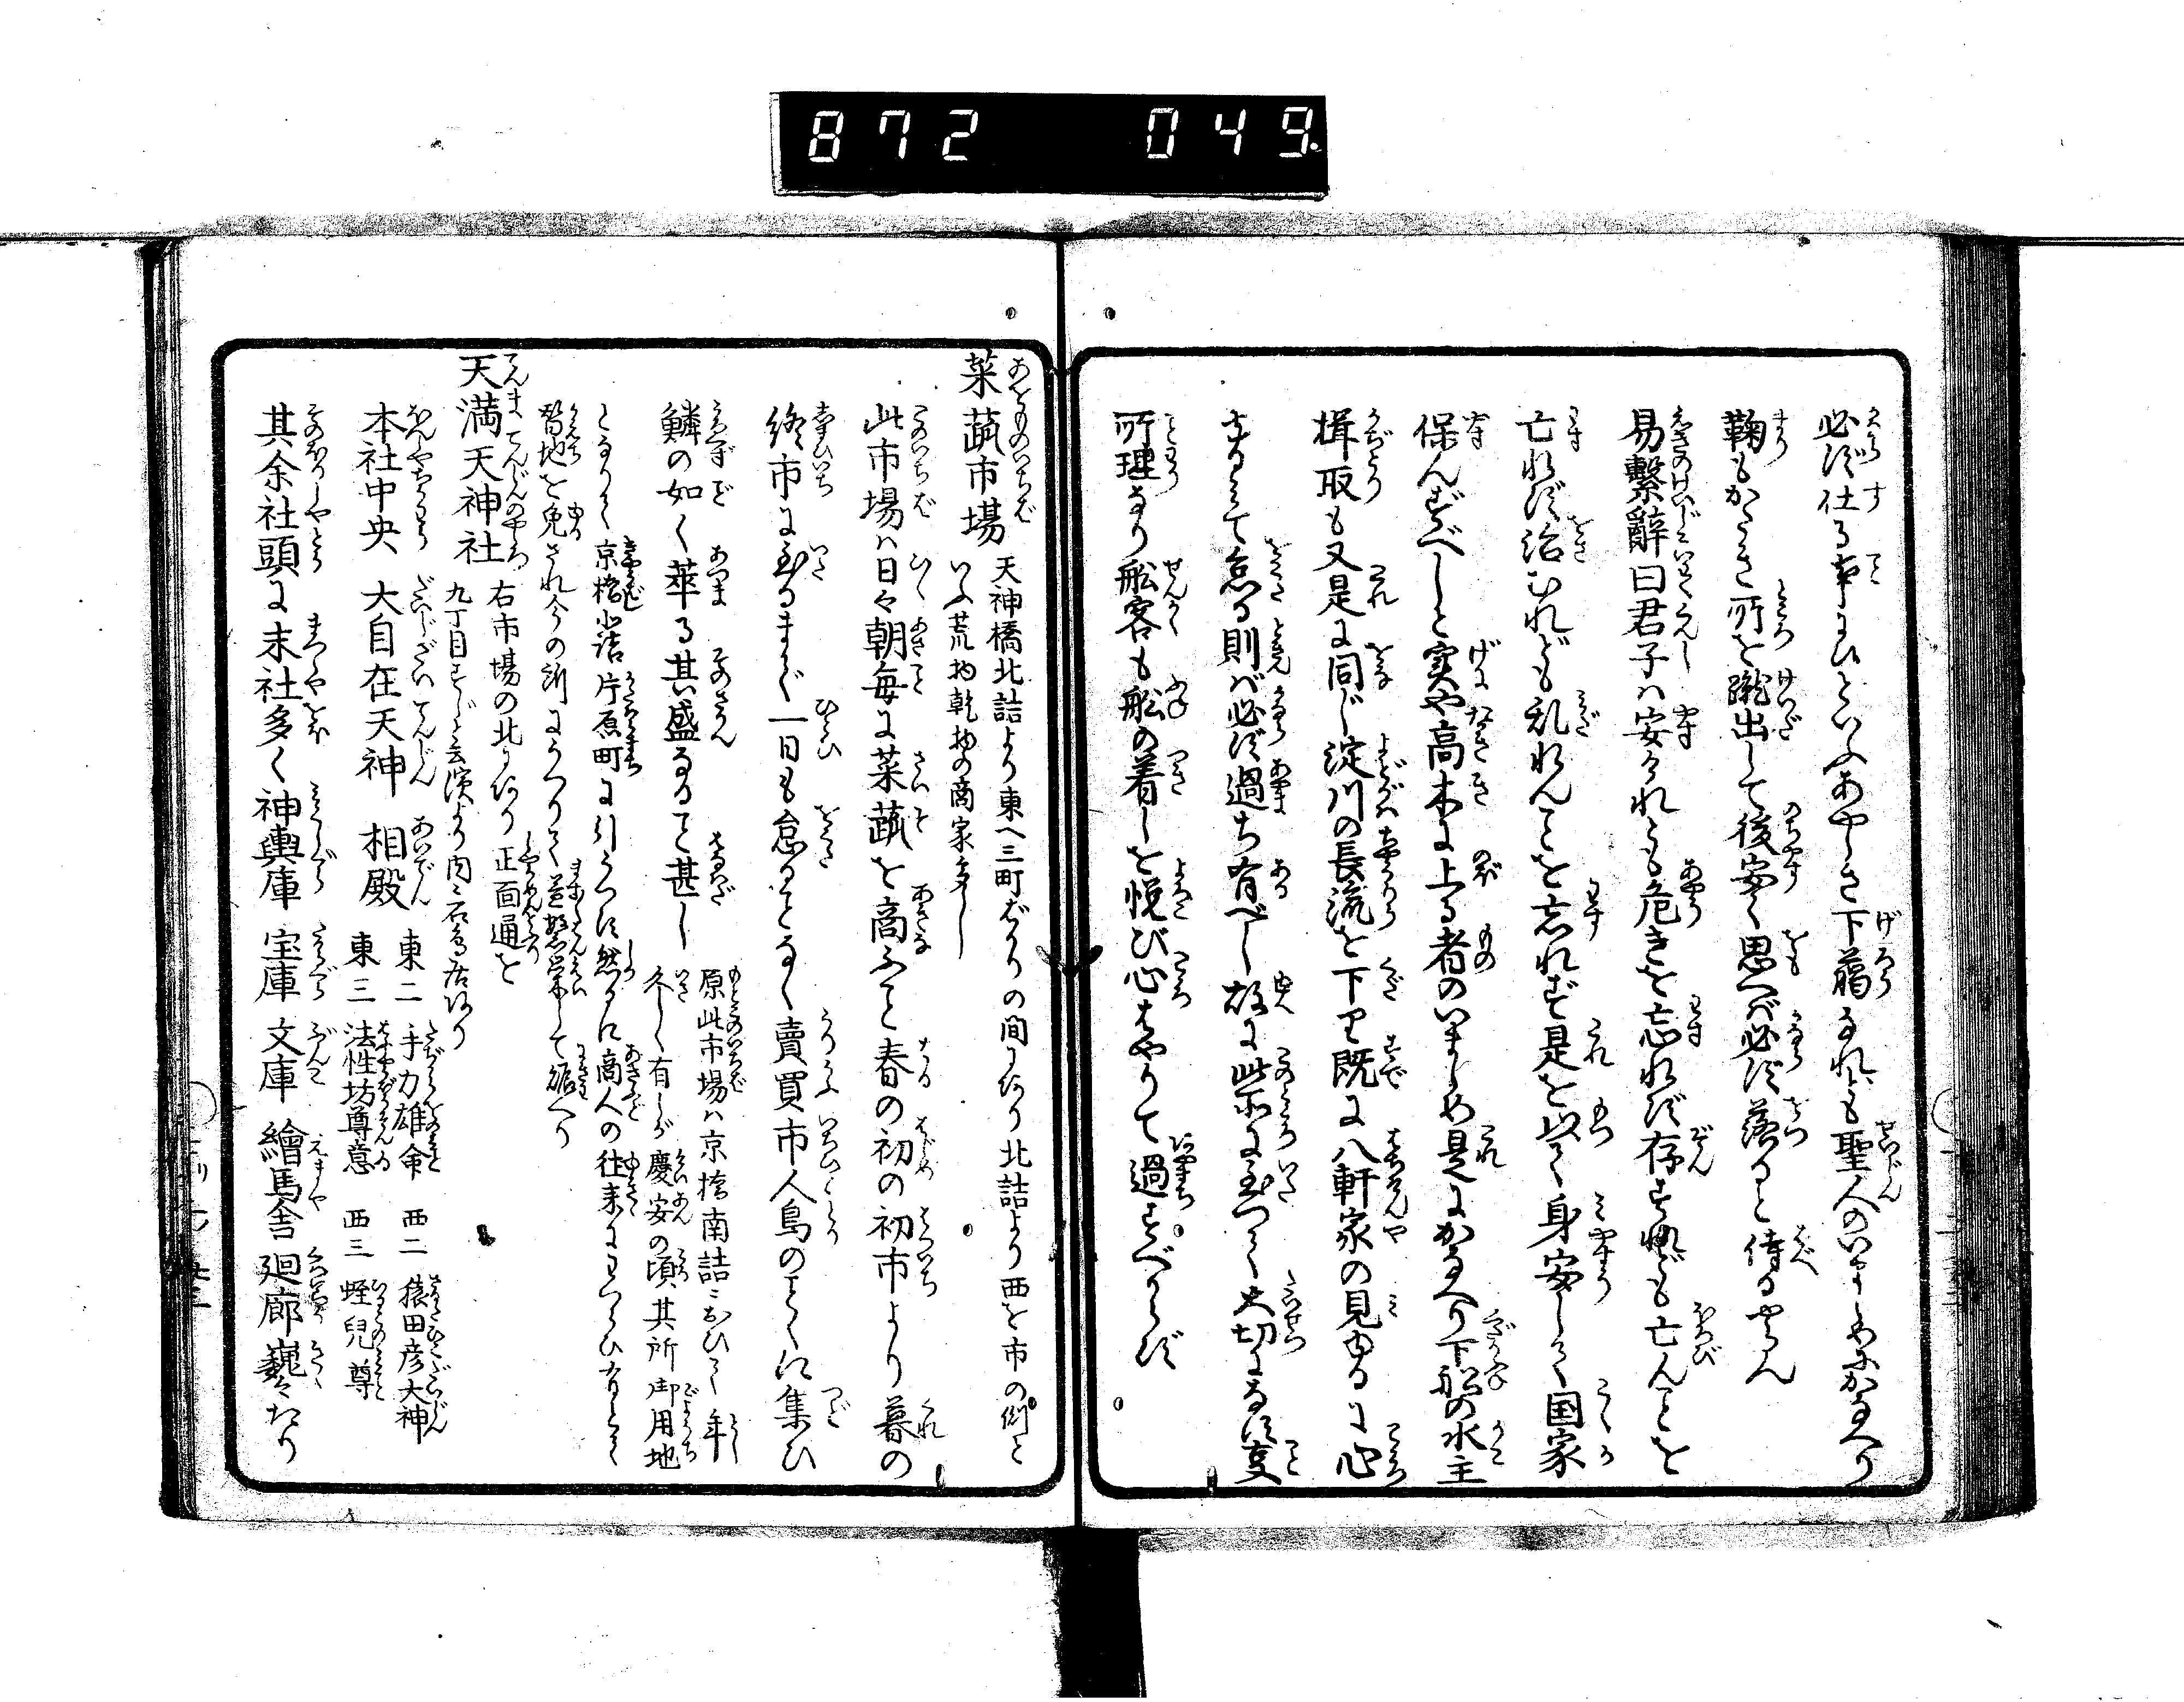 872 049
必ず仕る事に候といふあやしき下臈なれども聖人のいましめにかなへり
鞠もかたき所を蹴出して後安く思へば必ず落ると侍るやらん
易繋辞曰君子ハ安けれども危きを忘れず存すれども亡んことを
亡れず治むれども乱れんことを忘れず是を以て身安しくて国家
保んずべしと実や高木に上る者のいましめ是にかなへり下船の水主
楫取も又是に同じ淀川の長流を下り既に八軒家の見ゆるに心
ゆるみて怠る則ば必ず過ち有べし故に此所に至つて大切になす事
所理なり船客も船の着しを悦び心はやりて過すべからず
菜蔬市場
天神橋北詰より東へ三町ばかりの間にあり北詰より西を市の側と
いふ荒物乾物の商家多し
此市場ハ日々朝毎に菜蔬を商ふこと春の初の初市より暮の
終市に至るまで一日も怠ることなく賣買市人島のごとくに集ひ
鱗の如く萃る其盛なること甚し
原此市場ハ京橋南詰におひて年
久しく有しが慶安の頃其所御用地
となりて京橋北詰片原町に引うつる然るに商人の往来にわづらひ有とて
替地を免され今の所にうつりて益繁栄して賑へり
天満天神社
右市場の北にあり正面通を
九丁目すじと云濱より内に石鳥居あり
本社中央 大自在天神 相殿
東二 手力雄命 西二 猿田彦大神
東三 法性坊尊意 西三 蛭兒尊
其余社頭に末社多く神輿庫 宝庫 文庫 繪馬舎 廻廊巍々たり